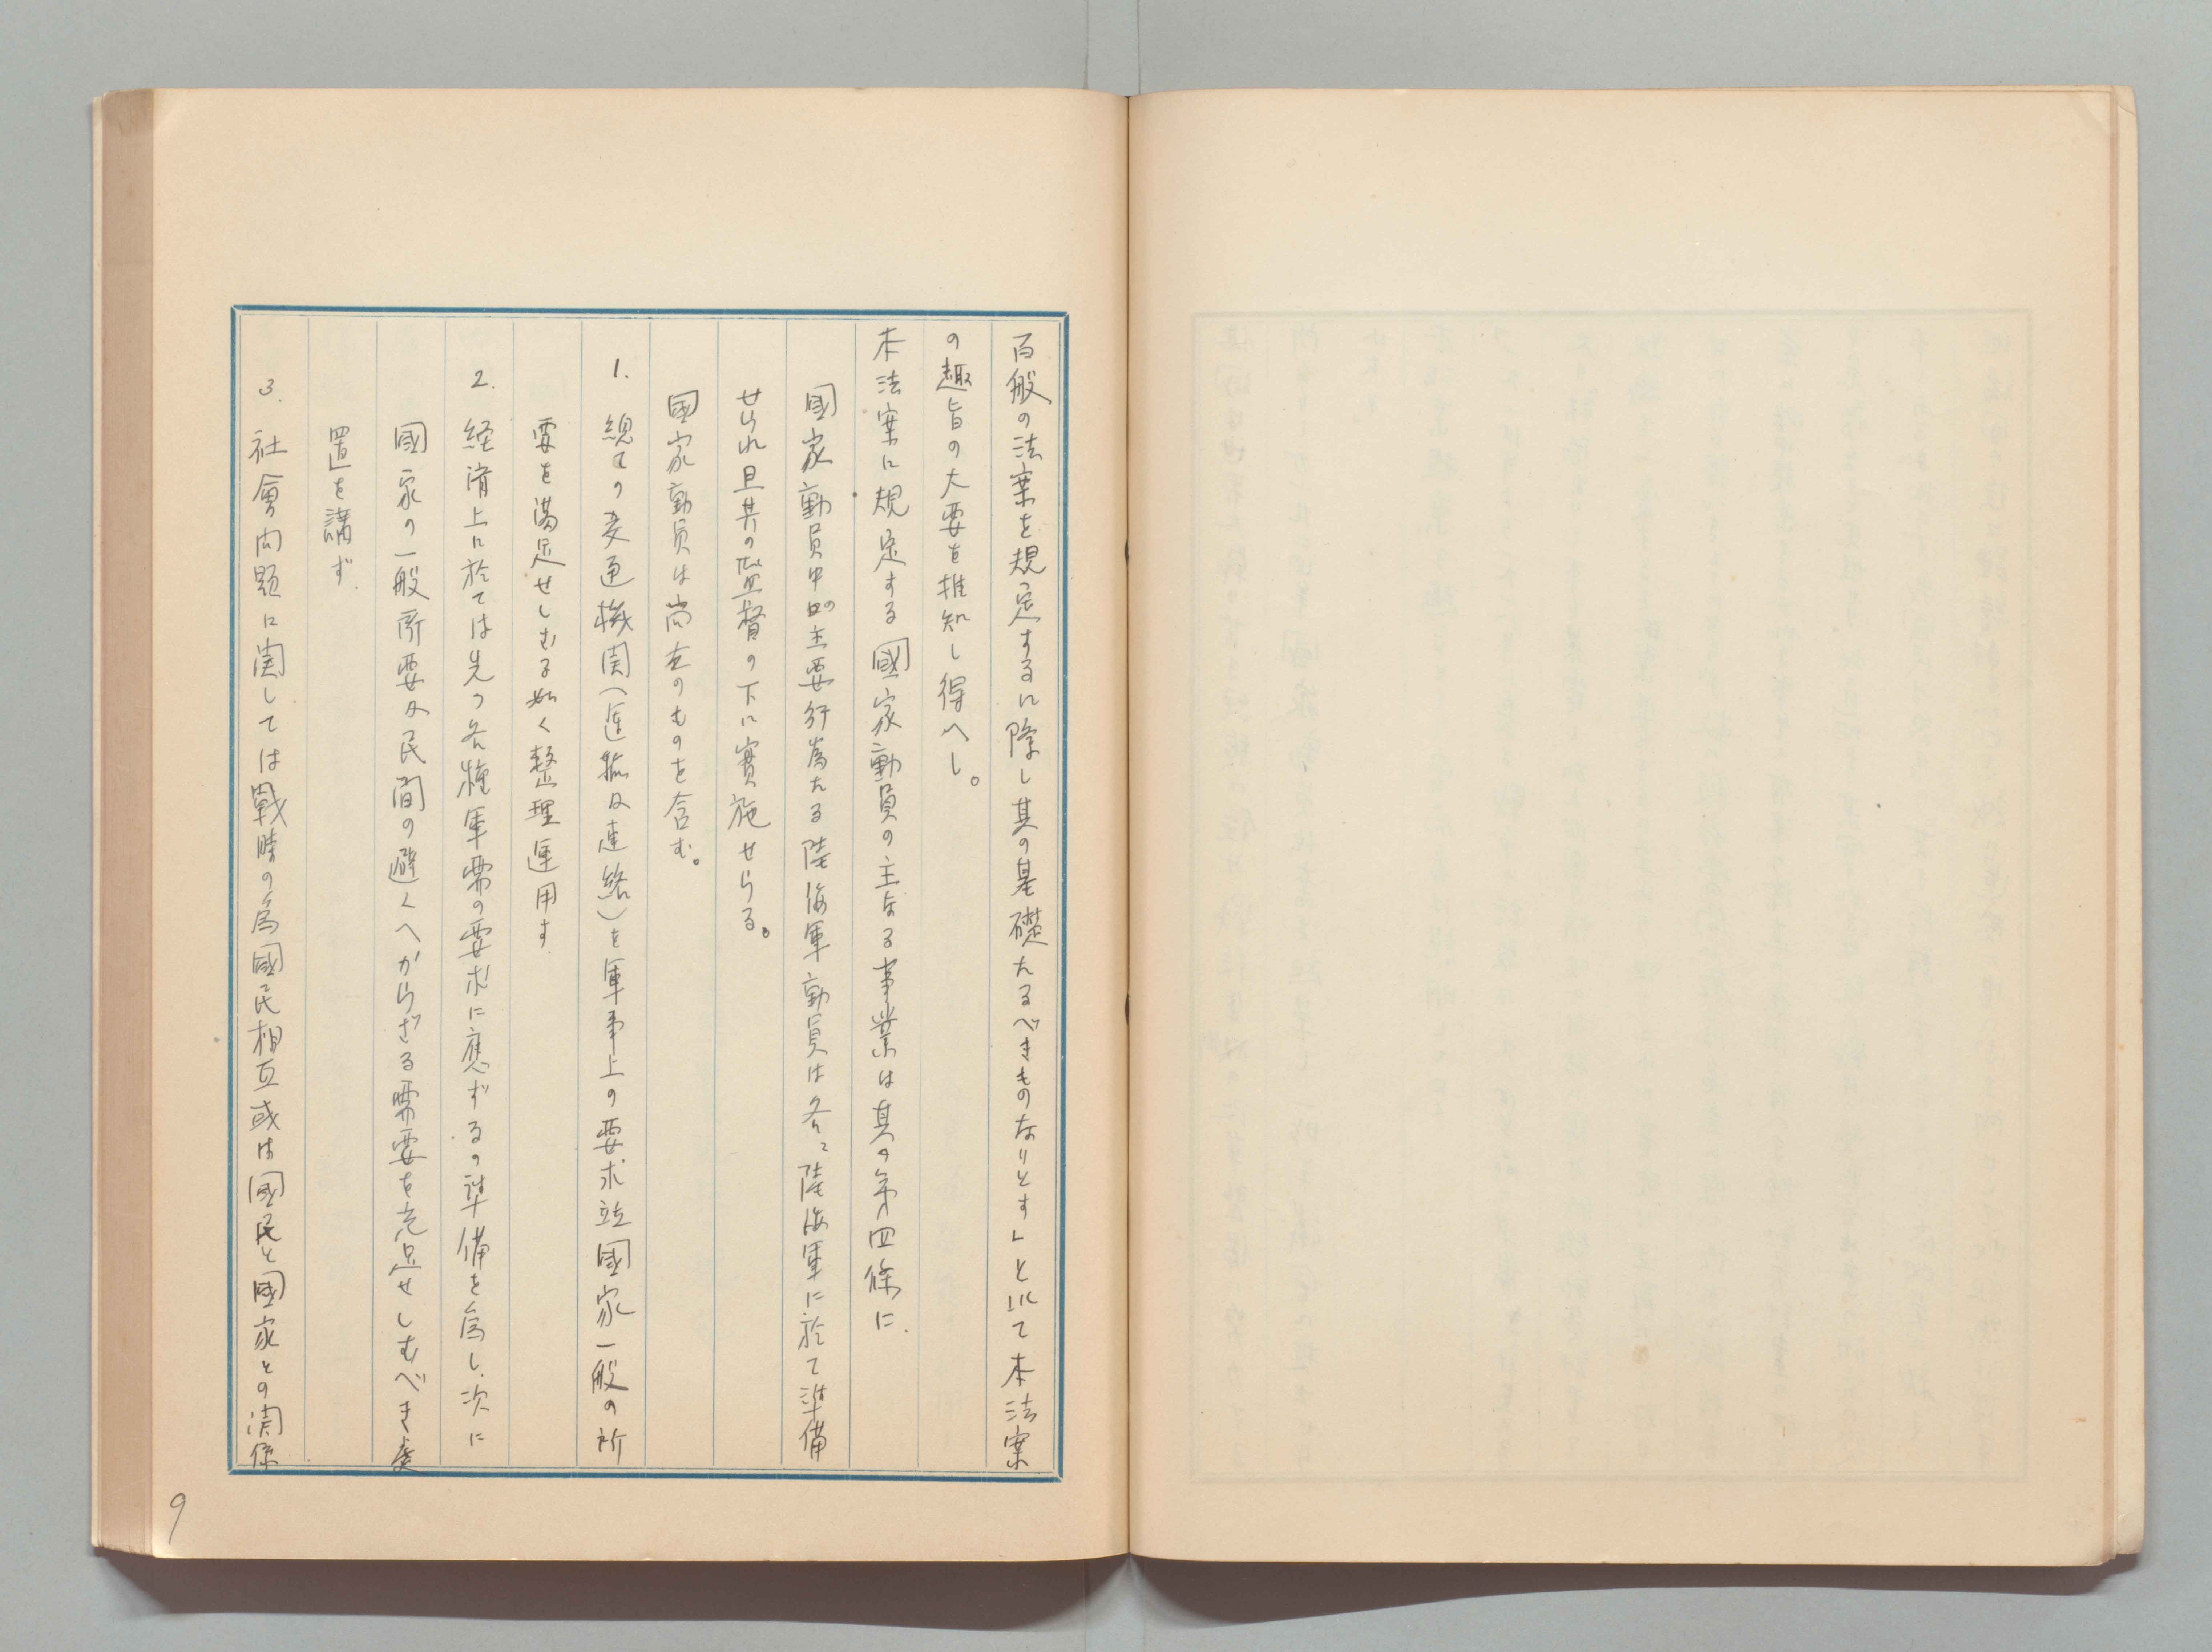 百般の法案を規定するに際し其の基礎たるべきものなりとす」と以て本法案
の趣旨の大要を推知し得へし。
本法案に規定する國家動員の主なる事業は其の第四條に
國家動員中の主要行為たる陸海軍動員は各〻陸海軍に於て準備
せられ且其の監督の下に實施せらる。
國家動員は尚左のものを含む。
1. 總ての交通機関(運輸及連絡)を軍事上の要求並國家一般の所
要を満足せしむる如く整理運用す
2. 経済上に於ては先つ各種軍需の要求に應ずるの準備を為し次に
國家の一般所要及民間の避くへからざる需要を充足せしむべき處
置を講ず.
3. 社會問題に関しては戰時の為國民相互或は國民と國家との関係
9